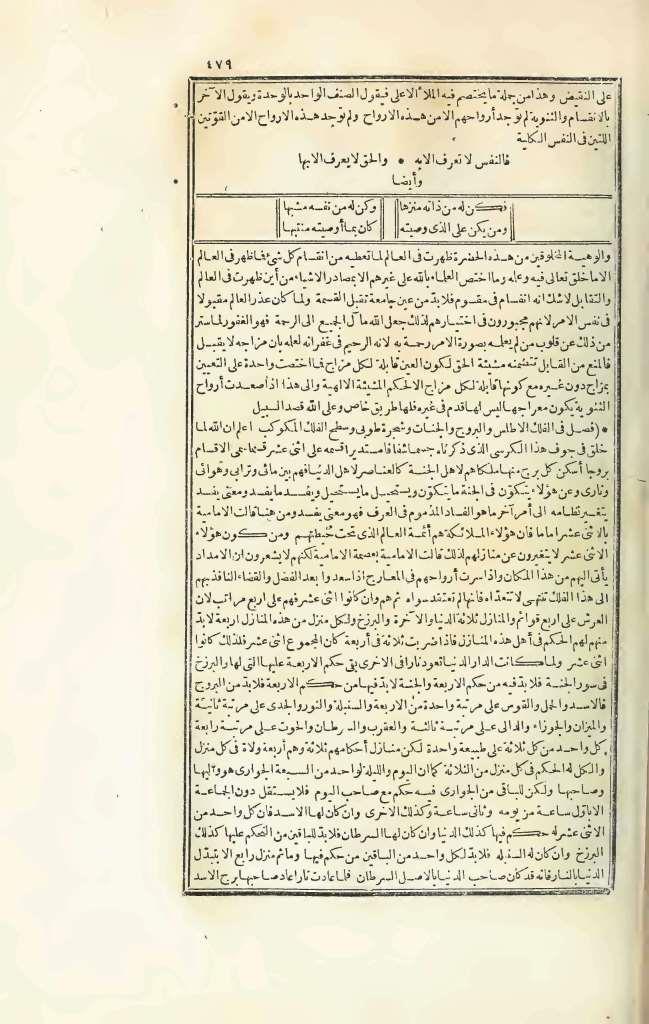 ٤٧٩
على النقيض وهذا من جملة ما يختصم فيه الملأ الاعلى فيقول الصنف الواحد بالوحدة ويقول الآخر
بالانقسام والثنوية لم توجد أرواحهم الامن هذه الارواح ولم توجد هذه الارواح الامن القوّتين
اللتين فى النفس الكلية
فالنفس لا تعرف الا به • والحق لا يعرف الا بها
وأيضا
فكن له من ذاته منزها وكن له من نفسه مشبها
ومن يكن على الذى وصيته كان بما أوصيته منتبها
والوهية المخلوقين من هذه الحضرة ظهرت فى العالم لما تعطيه من انقسام كل شئ فما ظهر فى العالم
الاما خلق تعالى فيه وعله وما اختص العلماء بالله على غيرهم الا بمصادر الاشياء من أين ظهرت فى العالم
والتقابل لاشك انه انقسام فى مقسوم فلابد من عين جامعة تقبل القسمة ولما كان عذر العالم مقبولا
فى نفس الامر لانهم مجبورون فى اختيارهم لذلك جعل الله مآل الجميع الى الرحمة فهو الغفور لما ستر
من ذلك عن قلوب من لم يعلمه بصورة الامر رحمة به لانه الرحيم فى غفرانه لعله بان مزاجه لا يقبل
فالمنع من القابل تتضمنه مشيئة الحق لكون العين قابلة لكل مزاج فما اختصت واحدة على التعيين
بمزاج دون غيره مع كونها قابلة لكل مزاج الالحكم المشيئة الالهية والى هذا اذا صعدت أرواح
الثنوية يكون معراجها ليس لها قدم فى غيره فلها طريق خاص وعلى الله قصد السبيل
• (فصل فى الفلك الاطلس والبروج والجنات وشجرة طوبى وسطح الفلك المكوكب) اعلم ان الله لما
خلق فى جوف هذا الكرسى الذى ذكرناه جسما شفافا مستديرا قسمه على اثنى عشر قسما سمى الاقسام
بروجا أسكن كل برج منها ملكا هم لاهل الجنة كالعناصر لاهل الدنيا فهم بين مائى وترابى وهوائى
ونارى وعن هؤلاء يتكوّن فى الجنة ما يتكوّن ويستحيل ما يستحيل ويفسد ما يفسد ومعنى يفسد
يتغير نظامه الى أمر آخر ما هو الفساد المذموم فى العرف فهو معنى يفسد ومن هنا قالت الامامية
بالاثنى عشر اماما فان هؤلاء الملائكة هم أئمة العالم الذى تحت حيطتهم ومن كون هؤلاء
الاثنى عشر لا يتغيرون عن منازلهم لذلك قالت الامامية بعصمة الامامية لكنهم لا يشعرون ان الامداد
يأتى اليهم من هذا المكان واذا سرت أرواحهم فى المعارج اذا سعدوا بعد الفصل والقضاء النافذ بهم
الى هذا الفلك تنتهى لا تتعداه فانها لم تعتقد سواه ثم هم وان كانوا اثنى عشر فهم على اربع مراتب لان
العرش على اربع قوائم والمنازل ثلاثة الدنيا والآخرة والبرزخ ولكل منزل من هذه المنازل اربعة لابد
منهم لهم الحكم فى أهل هذه المنازل فاذا ضربت ثلاثة فى أربعة كان المجموع اثنى عشر فلذلك كانوا
اثنى عشر ولما كانت الدار الدنيا تعود نارا فى الاخرى بقى حكم الاربعة عليها التى لها والبرزخ
فى سور الجنة فلابد فيه من حكم الاربعة والجنة لابد فيها من حكم الاربعة فلابد من البروج
فالاسد والحمل والقوس على مرتبة واحدة من الاربعة والسنبلة والثور والجدى على مرتبة ثانية
والميزان والجوزاء والدالى على مرتبة ثالثة والعقرب والسرطان والحوت على مرتبة رابعة
كل واحد من كل ثلاثة على طبيعة واحدة لكن منازل أحكامهم ثلاثة وهم أربعة ولاة فى كل منزل
والكل له الحكم فى كل منزل من الثلاثة كما ان اليوم والليلة لواحد من السبعة الجوارى هو واليها
وصاحبها ولكن للباقى من الجوارى فيه حكم مع صاحب اليوم فلا يستقل دون الجماعة
الا باوّل ساعة من يومه وثانى ساعة وكذلك الاخرى وان كان لها الاسد فان كل واحد من
الاثنى عشر له حكم فيها كذلك الدنيا وان كان لها السرطان فلابد للباقين من الحكم عليها كذلك
البرزخ وان كان له السنبلة فلابد لكل واحد من الباقين من حكم فيها وما ثم منزل رابع الا يتبدّل
الدنيا بالنار فانه قد كان صاحب الدنيا بالاصل السرطان فلما عادت نارا عاد صاحبها برج الاسد